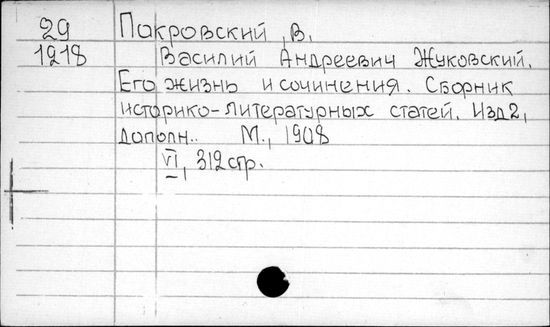 29 Покровский, В.
1218 Василий Андреевич Жуковский.
Его жизнь и сочинения. Сборник
историко-литературных статей. Изд2,
дополн.. М., 1908
VI, 312 стр.